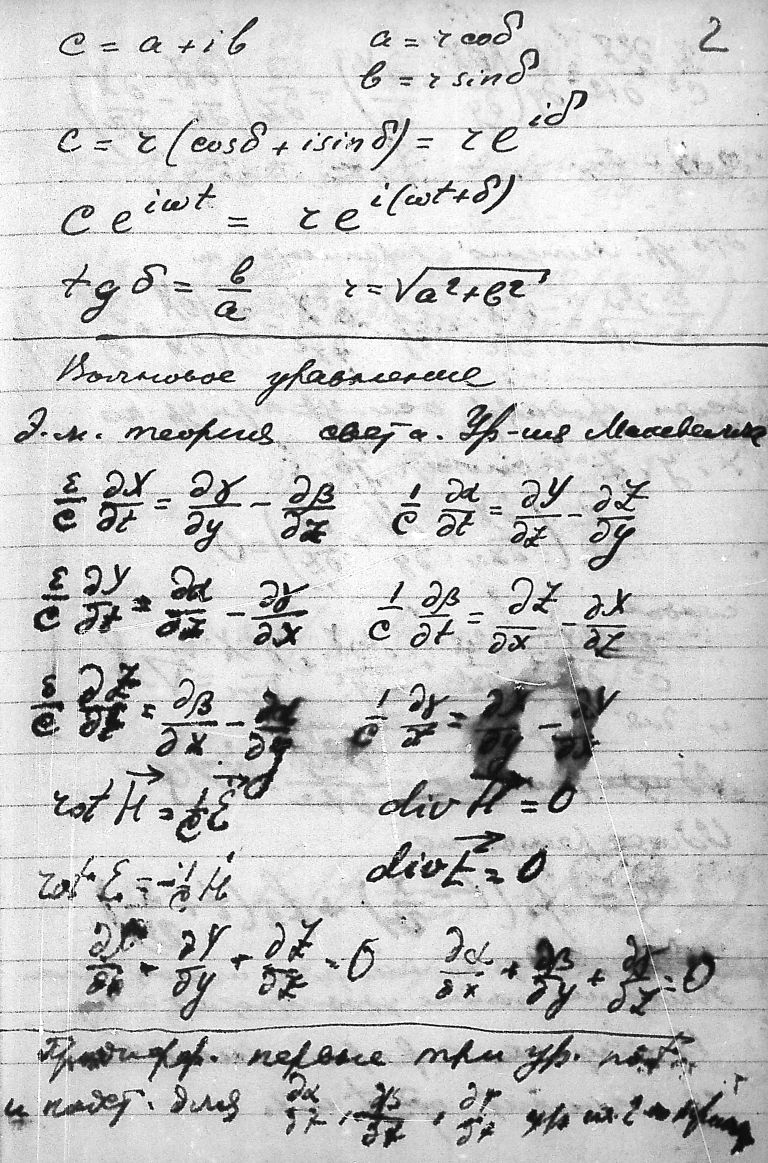 2
c = a + i b    a = r cos δ
b = r sin δ
c = r (cos δ + i sin δ) = r e^{iδ}
c e^{iωt} = r e^{i(ωt+δ)}
tg δ = b/a    r = √(a² + b²)
Волновое уравнение
Э.м. теория света. Ур-ия Максвелла
ε/c ∂X/∂t = ∂γ/∂y − ∂β/∂z    1/c ∂α/∂t = ∂Y/∂z − ∂Z/∂y
ε/c ∂Y/∂t = ∂α/∂z − ∂γ/∂x    1/c ∂β/∂t = ∂Z/∂x − ∂X/∂z
ε/c ∂Z/∂t = ∂β/∂x − ∂α/∂y    1/c ∂γ/∂t = ∂X/∂y − ∂Y/∂x
rot H⃗ = 1/c Ė    div H⃗ = 0
rot E = −1/c Ḣ    div E⃗ = 0
∂X/∂x + ∂Y/∂y + ∂Z/∂z = 0    ∂α/∂x + ∂β/∂y + ∂γ/∂z = 0
Продифф. первые три ур. по t
и подст. для ∂α/∂t, ∂β/∂t, ∂γ/∂t ур. из 2